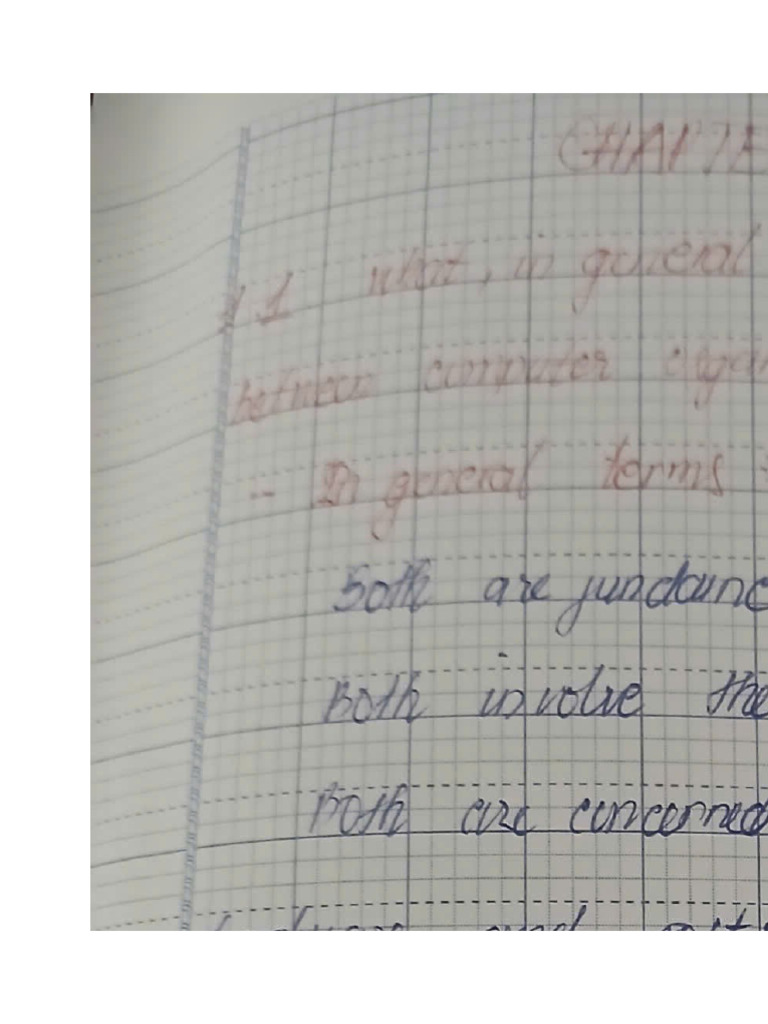 CHAPTE
1.1 what, in general
between computer organ
- In general terms
Both are fundame
Both involve the
Both are concerned
and